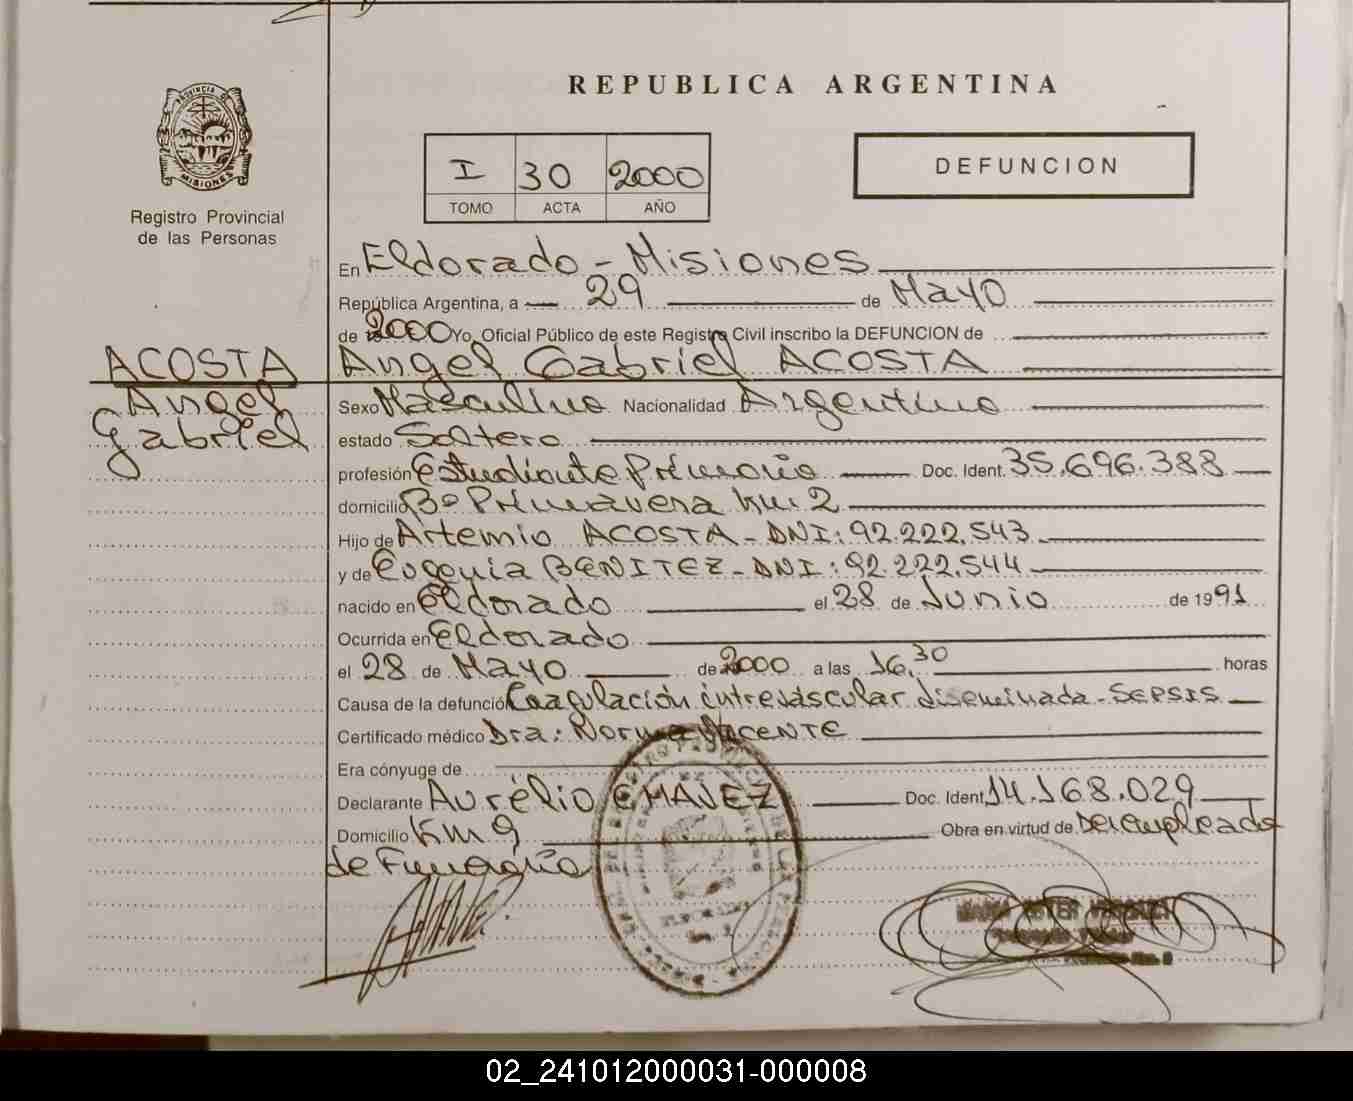 REPUBLICA ARGENTINA
PROVINCIA DE
MISIONES
Registro Provincial
de las Personas
I 30 2000
TOMO ACTA AÑO
DEFUNCION
En Eldorado - Misiones
República Argentina, a 29 de Mayo
de 2000 Yo, Oficial Público de este Registro Civil inscribo la DEFUNCION de
ACOSTA
Angel
Gabriel
Angel Gabriel ACOSTA
Sexo Masculino Nacionalidad Argentino
estado Soltero
profesión Estudiante Primario Doc. Ident. 35.696.388
domicilio Bº Primavera km. 2
Hijo de Artemio ACOSTA - DNI: 92.222.543
y de Eugenia BENITEZ - DNI: 92.222.544
nacido en Eldorado el 28 de Junio de 1991
Ocurrida en Eldorado
el 28 de Mayo de 2000 a las 16,30 horas
Causa de la defunción Coagulación intravascular diseminada - SEPSIS
Certificado médico Dra: Norma
Era cónyuge de
Declarante Aurélio CHAVEZ Doc. Ident. 14.168.029
Domicilio Km 9 Obra en virtud de Der. empleado
de Funeraria
02_241012000031-000008